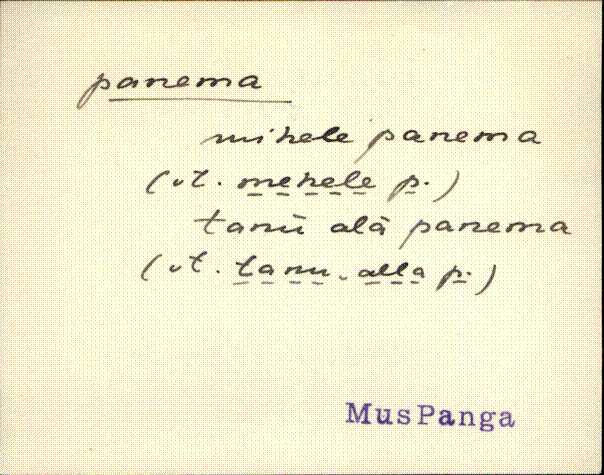 panema
mihele panema
(vt. mehele p.)
tanū͕ alā panema
(vt. tanu alla p.)
MusPanga